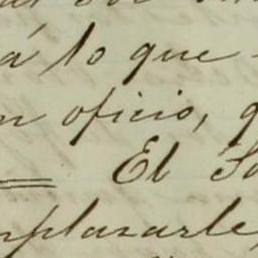 á lo que
n oficio,
El
mplazarle,